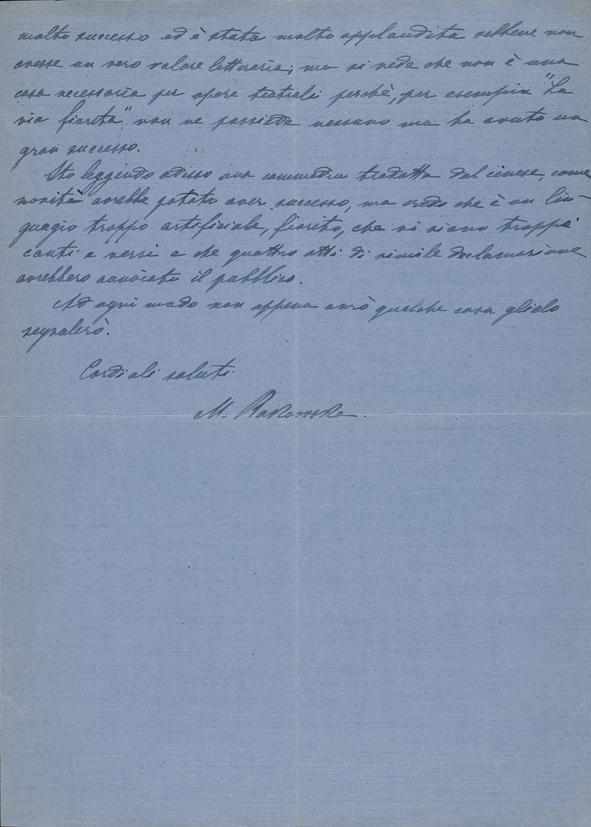 molto successo ed è stata molto applaudita sebbene non
avesse un vero valore letterario; ma si vede che non è una
cosa necessaria per opere teatrali perchè, per esempio "La
via fiorita" non ne possiede nessuno ma ha avuto un
gran successo.
Sto leggendo adesso una commedia tradotta dal cinese, come
novità avrebbe potuto aver successo, ma credo che è un lin-
guagio troppo artificiale, fiorito, che vi siano troppi
canti e versi e che quattro atti di simile declamazione
avrebbero annoiato il pubblico.
Ad ogni modo non appena avrò qualche cosa glielo
segnalerò.
Cordiali saluti
M. Rakowska.